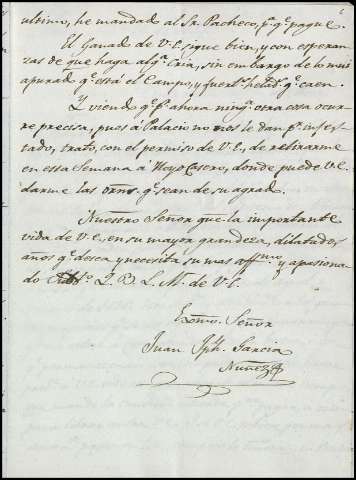 ultimo, he mandado al Sr. Pacheco, pa. qe. pague.
El Ganado de V.E. sigue bien, y con esperan-
zas de que haga algª. Cria, sin embargo de lo mui
apurado qe. está el Campo, y fuertes. helads. qe. caen.
Y viendo qe. pr. ahora ningª. otra cosa ocur-
re precisa, pues á Palacio no nos le dan pr. infes-
tado, trato, con el permiso de V.E, de retirarme
en esta Semana á Hoyo Casero, donde puede V.E.
darme las ornˢ. qe. sean de su agrado.
Nuestro Señor que la importante
vida de V.E, en su mayor grandeza, dilatados
años qe. desea y necesita su mas affmo. y apasiona-
do Q. B. L. M. de V.E.
Exmo. Señor
Juan Jph. Garcia
Nuñez